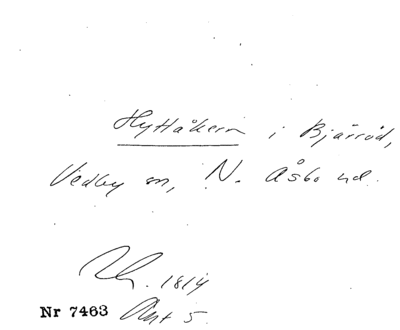 Hyttåkern i Bjärröd,
Vedby sn, N. Åsbo hd.
1814
Nr 7463 Akt 5.